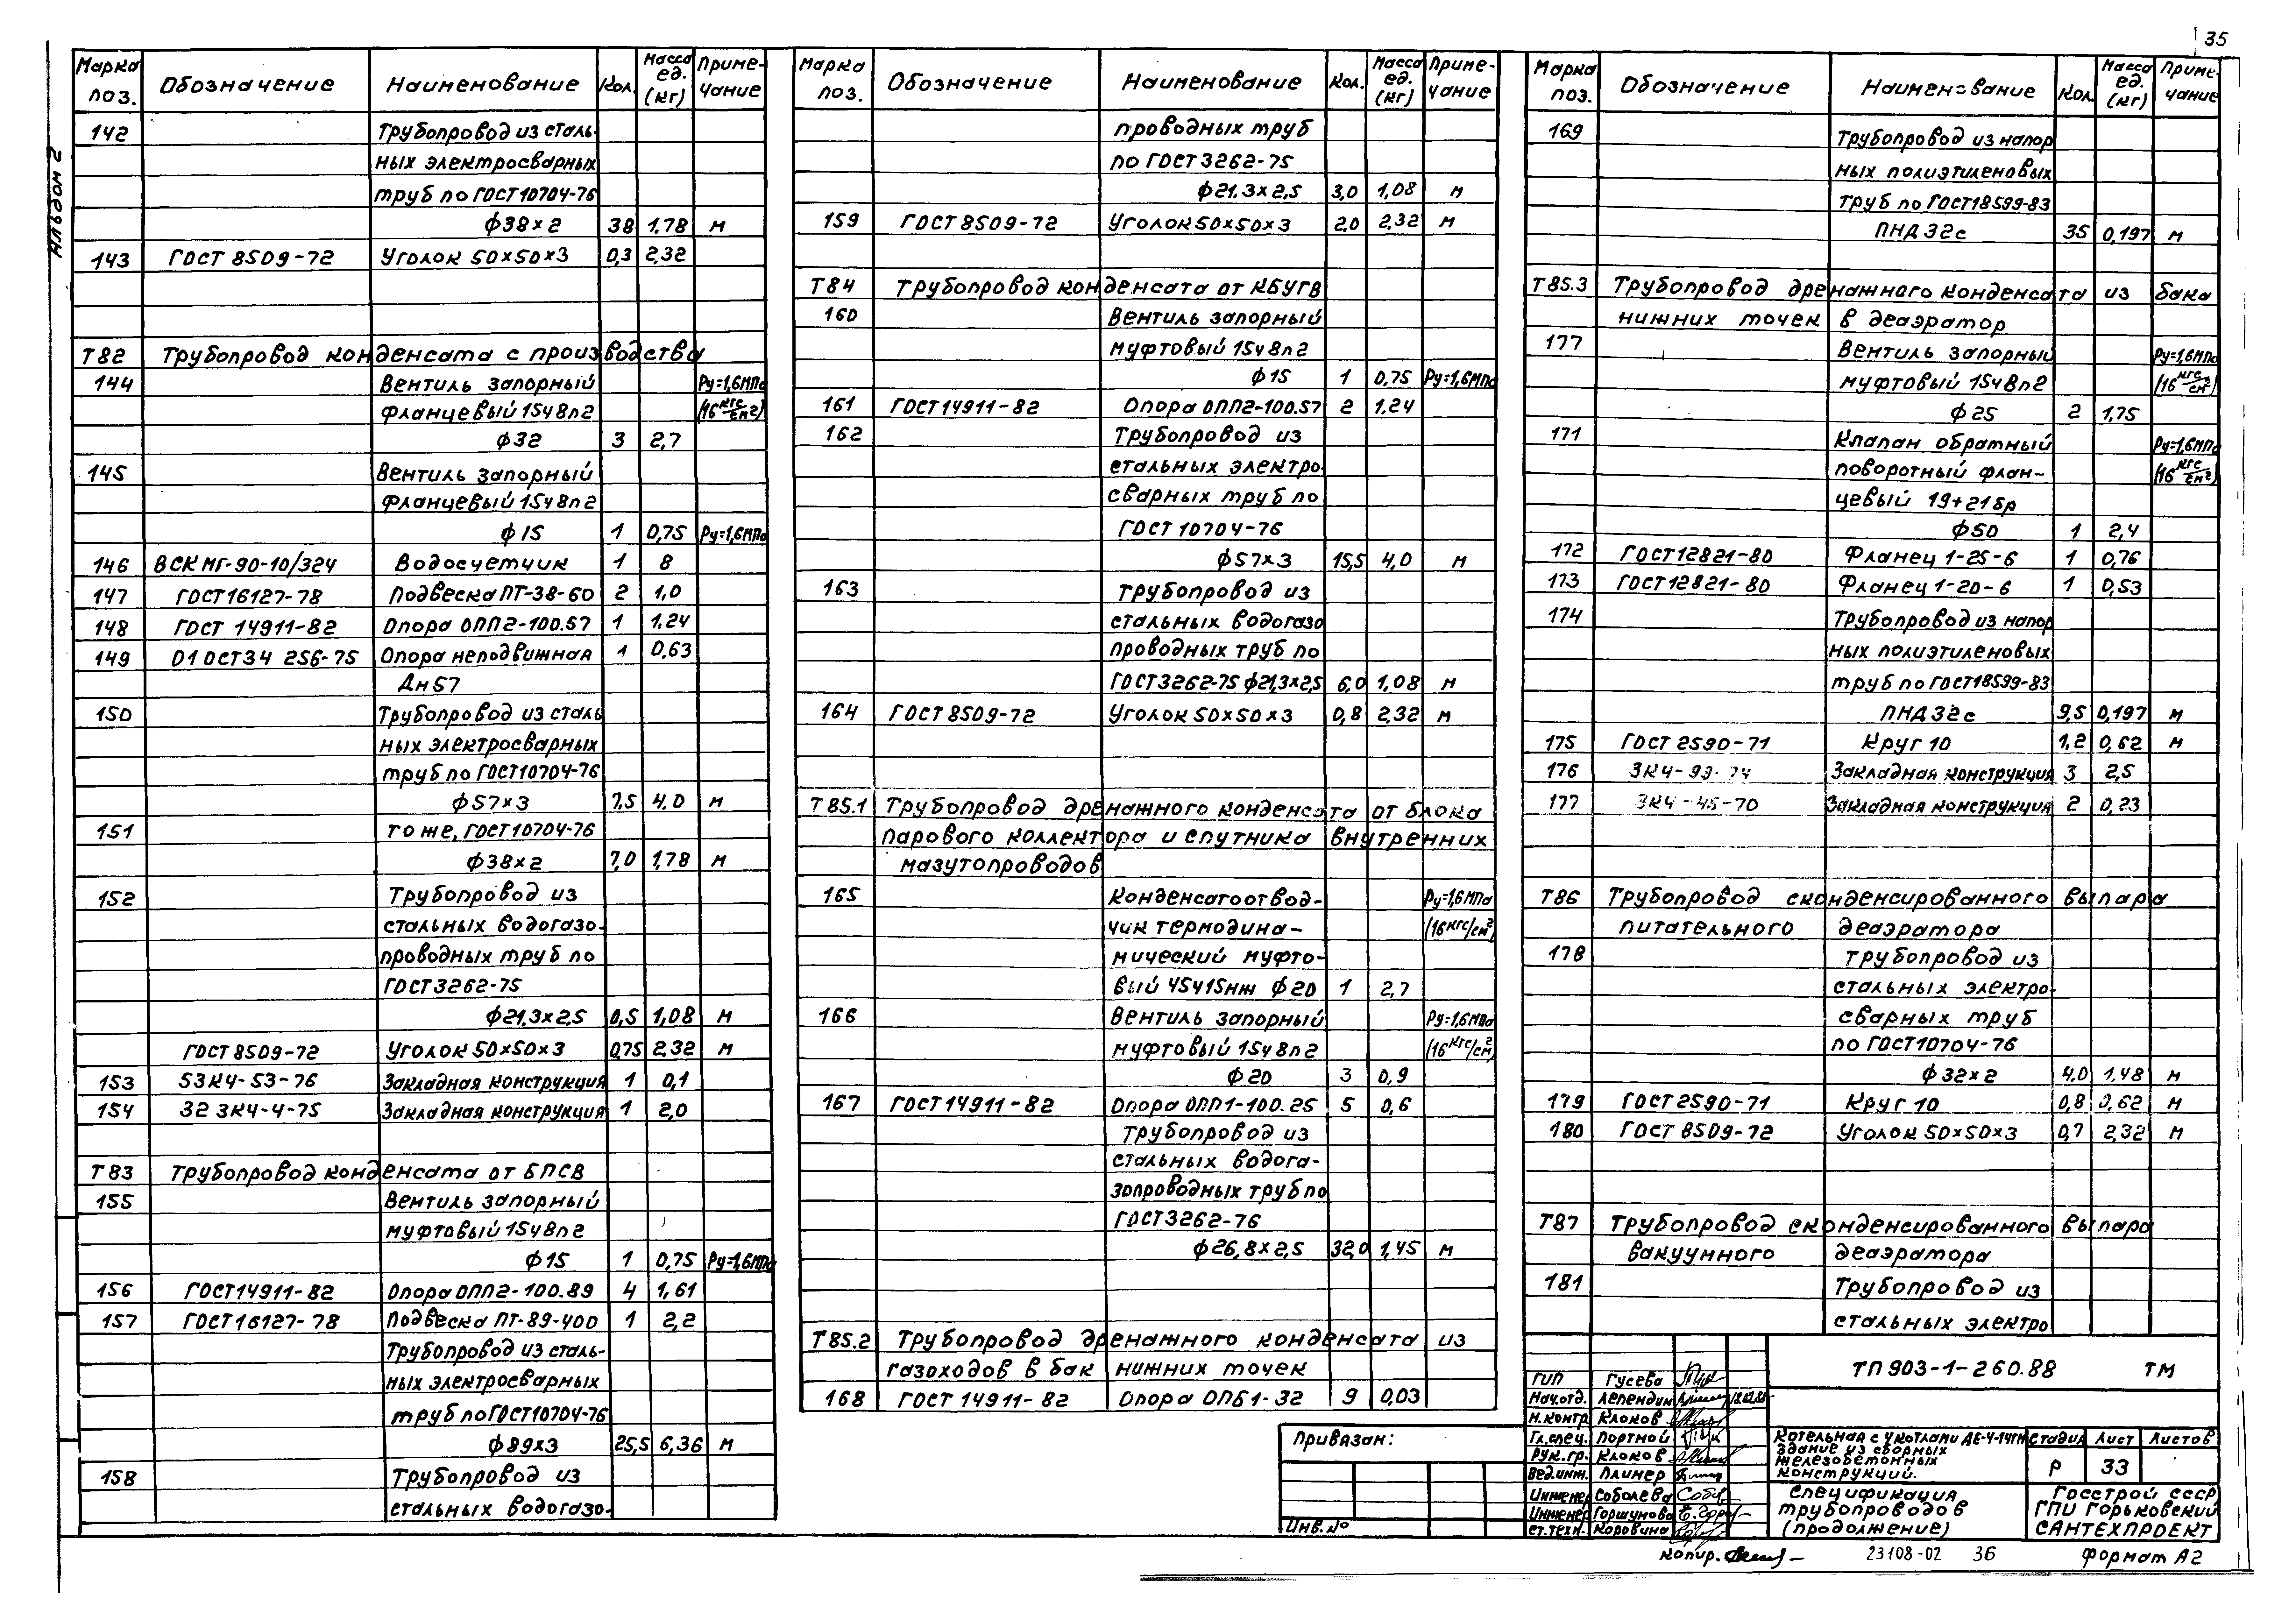 35
Альбом 2
Марка поз. Обозначение Наименование Кол. Масса ед. (кг) Примечание
142 Трубопровод из сталь-
ных электросварных
труб по ГОСТ10704-76
ф38×2 38 1,78 м
143 ГОСТ 8509-72 Уголок 50×50×3 0,3 2,32
Т82 Трубопровод конденсата с производства
144 Вентиль запорный Ру=1,6МПа
фланцевый 15ч8п2 (16 кгс/см²)
ф32 3 2,7
145 Вентиль запорный
фланцевый 15ч8п2
ф15 1 0,75 Ру=1,6МПа
146 ВСКМГ-90-10/324 Водосчетчик 1 8
147 ГОСТ16127-78 Подвеска ПТ-38-60 2 1,0
148 ГОСТ 14911-82 Опора ОПП2-100.57 1 1.24
149 01 ОСТ34 256-75 Опора неподвижная 1 0,63
Дн57
150 Трубопровод из сталь
ных электросварных
труб по ГОСТ10704-76
ф57×3 7,5 4,0 м
151 то же, ГОСТ10704-76
ф38×2 7,0 1,78 м
152 Трубопровод из
стальных водогазо-
проводных труб по
ГОСТ3262-75
ф21,3×2,5 0,5 1,08 м
ГОСТ8509-72 Уголок 50×50×3 0,75 2,32 м
153 53К4-53-76 Закладная конструкция 1 0,1
154 32 ЗК4-4-75 Закладная конструкция 1 2,0
Т83 Трубопровод конденсата от БПСВ
155 Вентиль запорный
муфтовый 15ч8п2
ф15 1 0,75 Ру=1,6МПа
156 ГОСТ14911-82 Опора ОПП2-100.89 4 1,61
157 ГОСТ16127-78 Подвеска ПТ-89-400 1 2,2
Трубопровод из сталь-
ных электросварных
труб по ГОСТ10704-76
ф89×3 25,5 6,36 м
158 Трубопровод из
стальных водогазо-
Марка поз. Обозначение Наименование Кол. Масса ед. (кг) Примечание
проводных труб
по ГОСТ3262-75
ф21,3×2,5 3,0 1,08 м
159 ГОСТ8509-72 Уголок50×50×3 2,0 2,32 м
Т84 Трубопровод конденсата от КБУГВ
160 Вентиль запорный
муфтовый 15ч8п2
ф15 1 0,75 Ру=1,6МПа
161 ГОСТ14911-82 Опора ОПП2-100.57 2 1,24
162 Трубопровод из
стальных электро-
сварных труб по
ГОСТ 10704-76
ф57×3 15,5 4,0 м
163 Трубопровод из
стальных водогазо
проводных труб по
ГОСТ3262-75 ф21,3×2,5 6,0 1,08 м
164 ГОСТ8509-72 Уголок 50×50×3 0,8 2,32 м
Т85.1 Трубопровод дренажного конденсата от блока
парового коллектора и спутника внутренних
мазутопроводов
165 Конденсатоотвод- Ру=1,6МПа
чик термодина- (16 кгс/см²)
мический муфто-
вый 45ч15нж ф20 1 2,7
166 Вентиль запорный Ру=1,6МПа
муфтовый 15ч8п2 (16 кгс/см²)
ф20 3 0,9
167 ГОСТ14911-82 Опора ОПП1-100.25 5 0,6
Трубопровод из
стальных водога-
зопроводных труб по
ГОСТ3262-76
ф26,8×2,5 32,0 1,45 м
Т85.2 Трубопровод дренажного конденсата из
газоходов в бак нижних точек
168 ГОСТ 14911-82 Опора ОПБ1-32 9 0,03
Марка поз. Обозначение Наименование Кол. Масса ед. (кг) Примечание
169 Трубопровод из напор
ных полиэтиленовых
труб по ГОСТ18599-83
ПНД32с 35 0,197 м
Т85.3 Трубопровод дренажного конденсата из бака
нижних точек в деаэратор
177 Вентиль запорный Ру=1,6МПа
муфтовый 15ч8п2 (16 кгс/см²)
ф25 2 1,75
171 Клапан обратный Ру=1,6МПа
поворотный флан- (16 кгс/см²)
цевый 19ч21бр
ф50 1 2,4
172 ГОСТ12821-80 Фланец 1-25-6 1 0,76
173 ГОСТ12821-80 Фланец 1-20-6 1 0,53
174 Трубопровод из напор
ных полиэтиленовых
труб по ГОСТ18599-83
ПНД32с 9,5 0,197 м
175 ГОСТ 2590-71 Круг 10 1,2 0,62 м
176 Закладная конструкция 3 2,5
177 ЗК4-45-70 Закладная конструкция 2 0,23
Т86 Трубопровод сконденсированного выпара
питательного деаэратора
178 Трубопровод из
стальных электро-
сварных труб
по ГОСТ10704-76
ф32×2 4,0 1,48 м
179 ГОСТ2590-71 Круг 10 0,8 0,62 м
180 ГОСТ 8509-72 Уголок 50×50×3 0,7 2,32 м
Т87 Трубопровод сконденсированного выпара
вакуумного деаэратора
181 Трубопровод из
стальных электро
Привязан:
Инв.№
ГИП Гусева
Нач.отд. Лепендин
Н.контр Клоков
Гл.спец. Портной
Рук.гр. Клоков
Вед.инж. Плинер
Инженер Соболева
Инженер Горшунова
Ст.техн. Коровина
ТП 903-1-260.88 ТМ
Котельная с 4 котлами ДЕ-4-14ГМ
Здание из сборных
железобетонных
конструкций.
Стадия Лист Листов
Р 33
Спецификация
трубопроводов
(продолжение)
Госстрой СССР
ГПИ Горьковский
САНТЕХПРОЕКТ
Копир.
23108-02 36
Формат А2